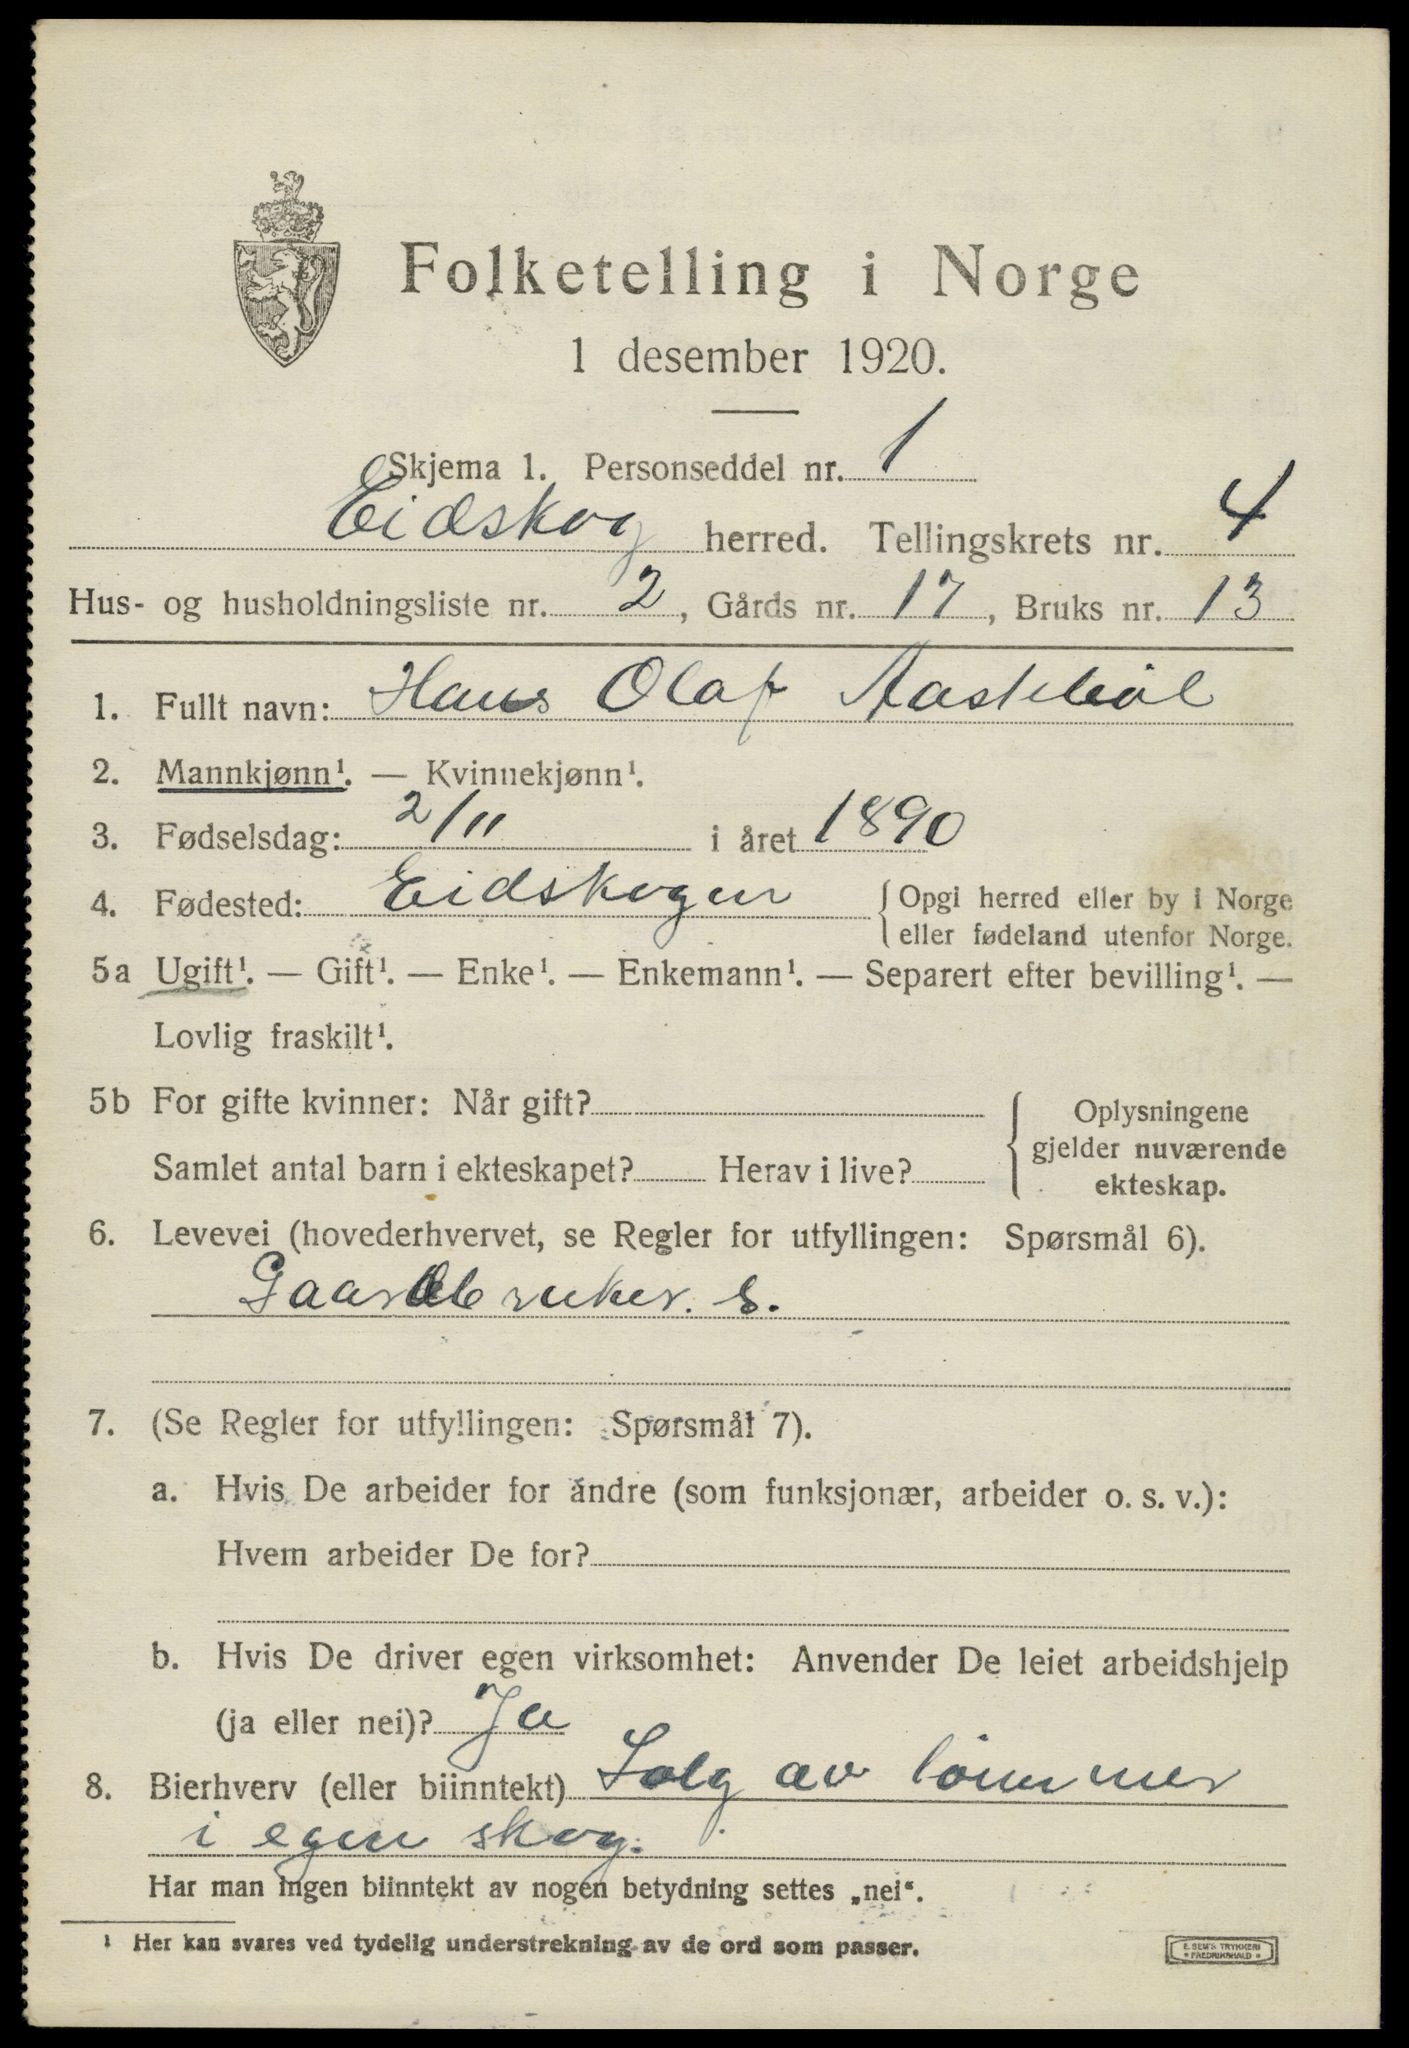 Folketelling i Norge
1 desember 1920.
Skjema 1. Personseddel nr. 1
Eidskog herred. Tellingskrets nr. 4
Hus- og husholdningsliste nr. 2, Gårds nr. 17, Bruks nr. 13
1. Fullt navn: Hans Olaf Aastebøl
2. Mannkjønn¹. — Kvinnekjønn¹.
3. Fødselsdag: 2/11 i året 1890
4. Fødested: Eidskogen { Opgi herred eller by i Norge
eller fødeland utenfor Norge.
5a Ugift¹. — Gift¹. — Enke¹. — Enkemann¹. — Separert efter bevilling¹. —
Lovlig fraskilt¹.
5b For gifte kvinner: Når gift?
Samlet antal barn i ekteskapet? Herav i live?
{ Oplysningene
gjelder nuværende
ekteskap.
6. Levevei (hovederhvervet, se Regler for utfyllingen: Spørsmål 6).
Gaardbruker. S.
7. (Se Regler for utfyllingen: Spørsmål 7).
a. Hvis De arbeider for andre (som funksjonær, arbeider o. s. v.):
Hvem arbeider De for?
b. Hvis De driver egen virksomhet: Anvender De leiet arbeidshjelp
(ja eller nei)? Ja
8. Bierhverv (eller biinntekt) Salg av tømmer
i egen skog.
Har man ingen biinntekt av nogen betydning settes „nei“.
¹ Her kan svares ved tydelig understrekning av de ord som passer.
E. SEM'S TRYKKERI
* FREDRIKSHALD *